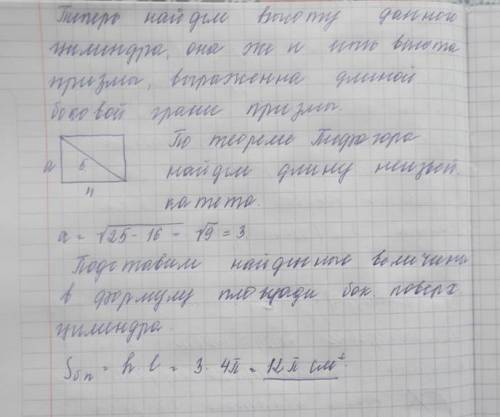 Теперь найдём высоту данного
цилиндра, она же и
призмы, выраженна длиной
боковой грани призмы.
По теореме Пифагора
a 5 найдём длину неизвест.
4 катета.
a = √25 - 16 = √9 = 3
Подставим найденные величины
в формулу площади бок. поверх.
цилиндра.
Sбп = h l = 3 · 4π = 12π см²